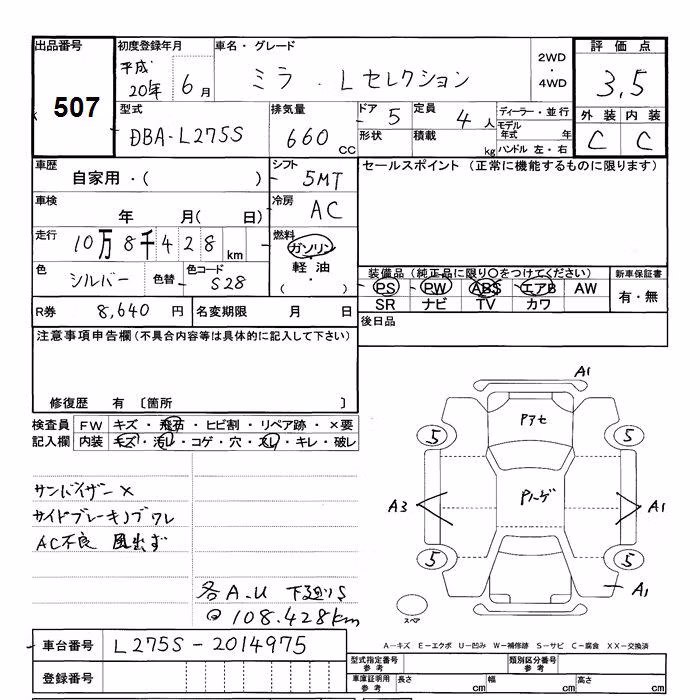 出品番号
507
初度登録年月
平成
20年 6月
車名・グレード
ミラ・Lセレクション
2WD
・
4WD
評価点
3,5
型式
DBA-L275S
排気量
660 cc
ドア 5
定員 4人
形状
積載 kg
ディーラー・並行
モデル年式 年
ハンドル 左・右
外装 内装
C C
車歴
自家用・( )
シフト
5MT
セールスポイント (正常に機能するものに限ります)
車検
年 月( 日)
冷房
AC
走行
10万8千428km
燃料
ガソリン
軽油
( ・ )
色
シルバー
色替
色コード
S28
装備品 (純正品に限り○をつけてください)
PS PW ABS エアB AW
SR ナビ TV カワ
新車保証書
有・無
R券 8,640 円
名変期限 月 日
後日品
注意事項申告欄 (不具合内容等は具体的に記入して下さい)
修復歴 有 〔箇所 〕
検査員記入欄
FW キズ・飛石・ヒビ割・リペア跡・×要
内装 キズ・汚レ・コゲ・穴・スレ・キレ・破レ
サンバイザー×
サイドブレーキノブワレ
AC不良 風出ず
各A.U 下廻りS
108.428km
A1
Pアセ
5 5
Pルーゲ
A3 A1
5 5
A1
スペア
車台番号 L275S-2014975
A−キズ E−エクボ U−凹み W−補修跡 S−サビ C−腐食 XX−交換済
登録番号
型式指定番号
参考
類別区分番号
参考
車庫証明用
参考
長さ cm
幅 cm
高さ cm